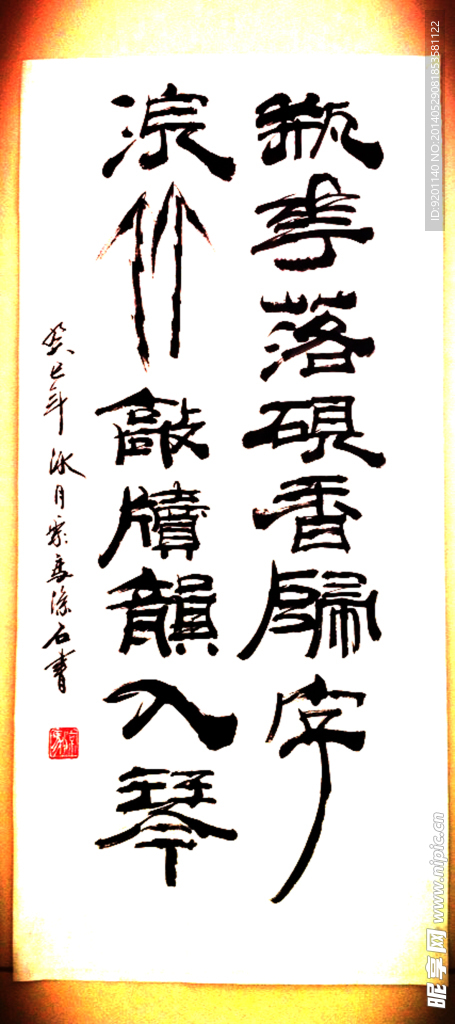 瓶花落砚香归字
凉竹敲牍韵入琴
癸巳年
ID:9201140 NO:20140529081853581122
昵享网 www.nipic.cn